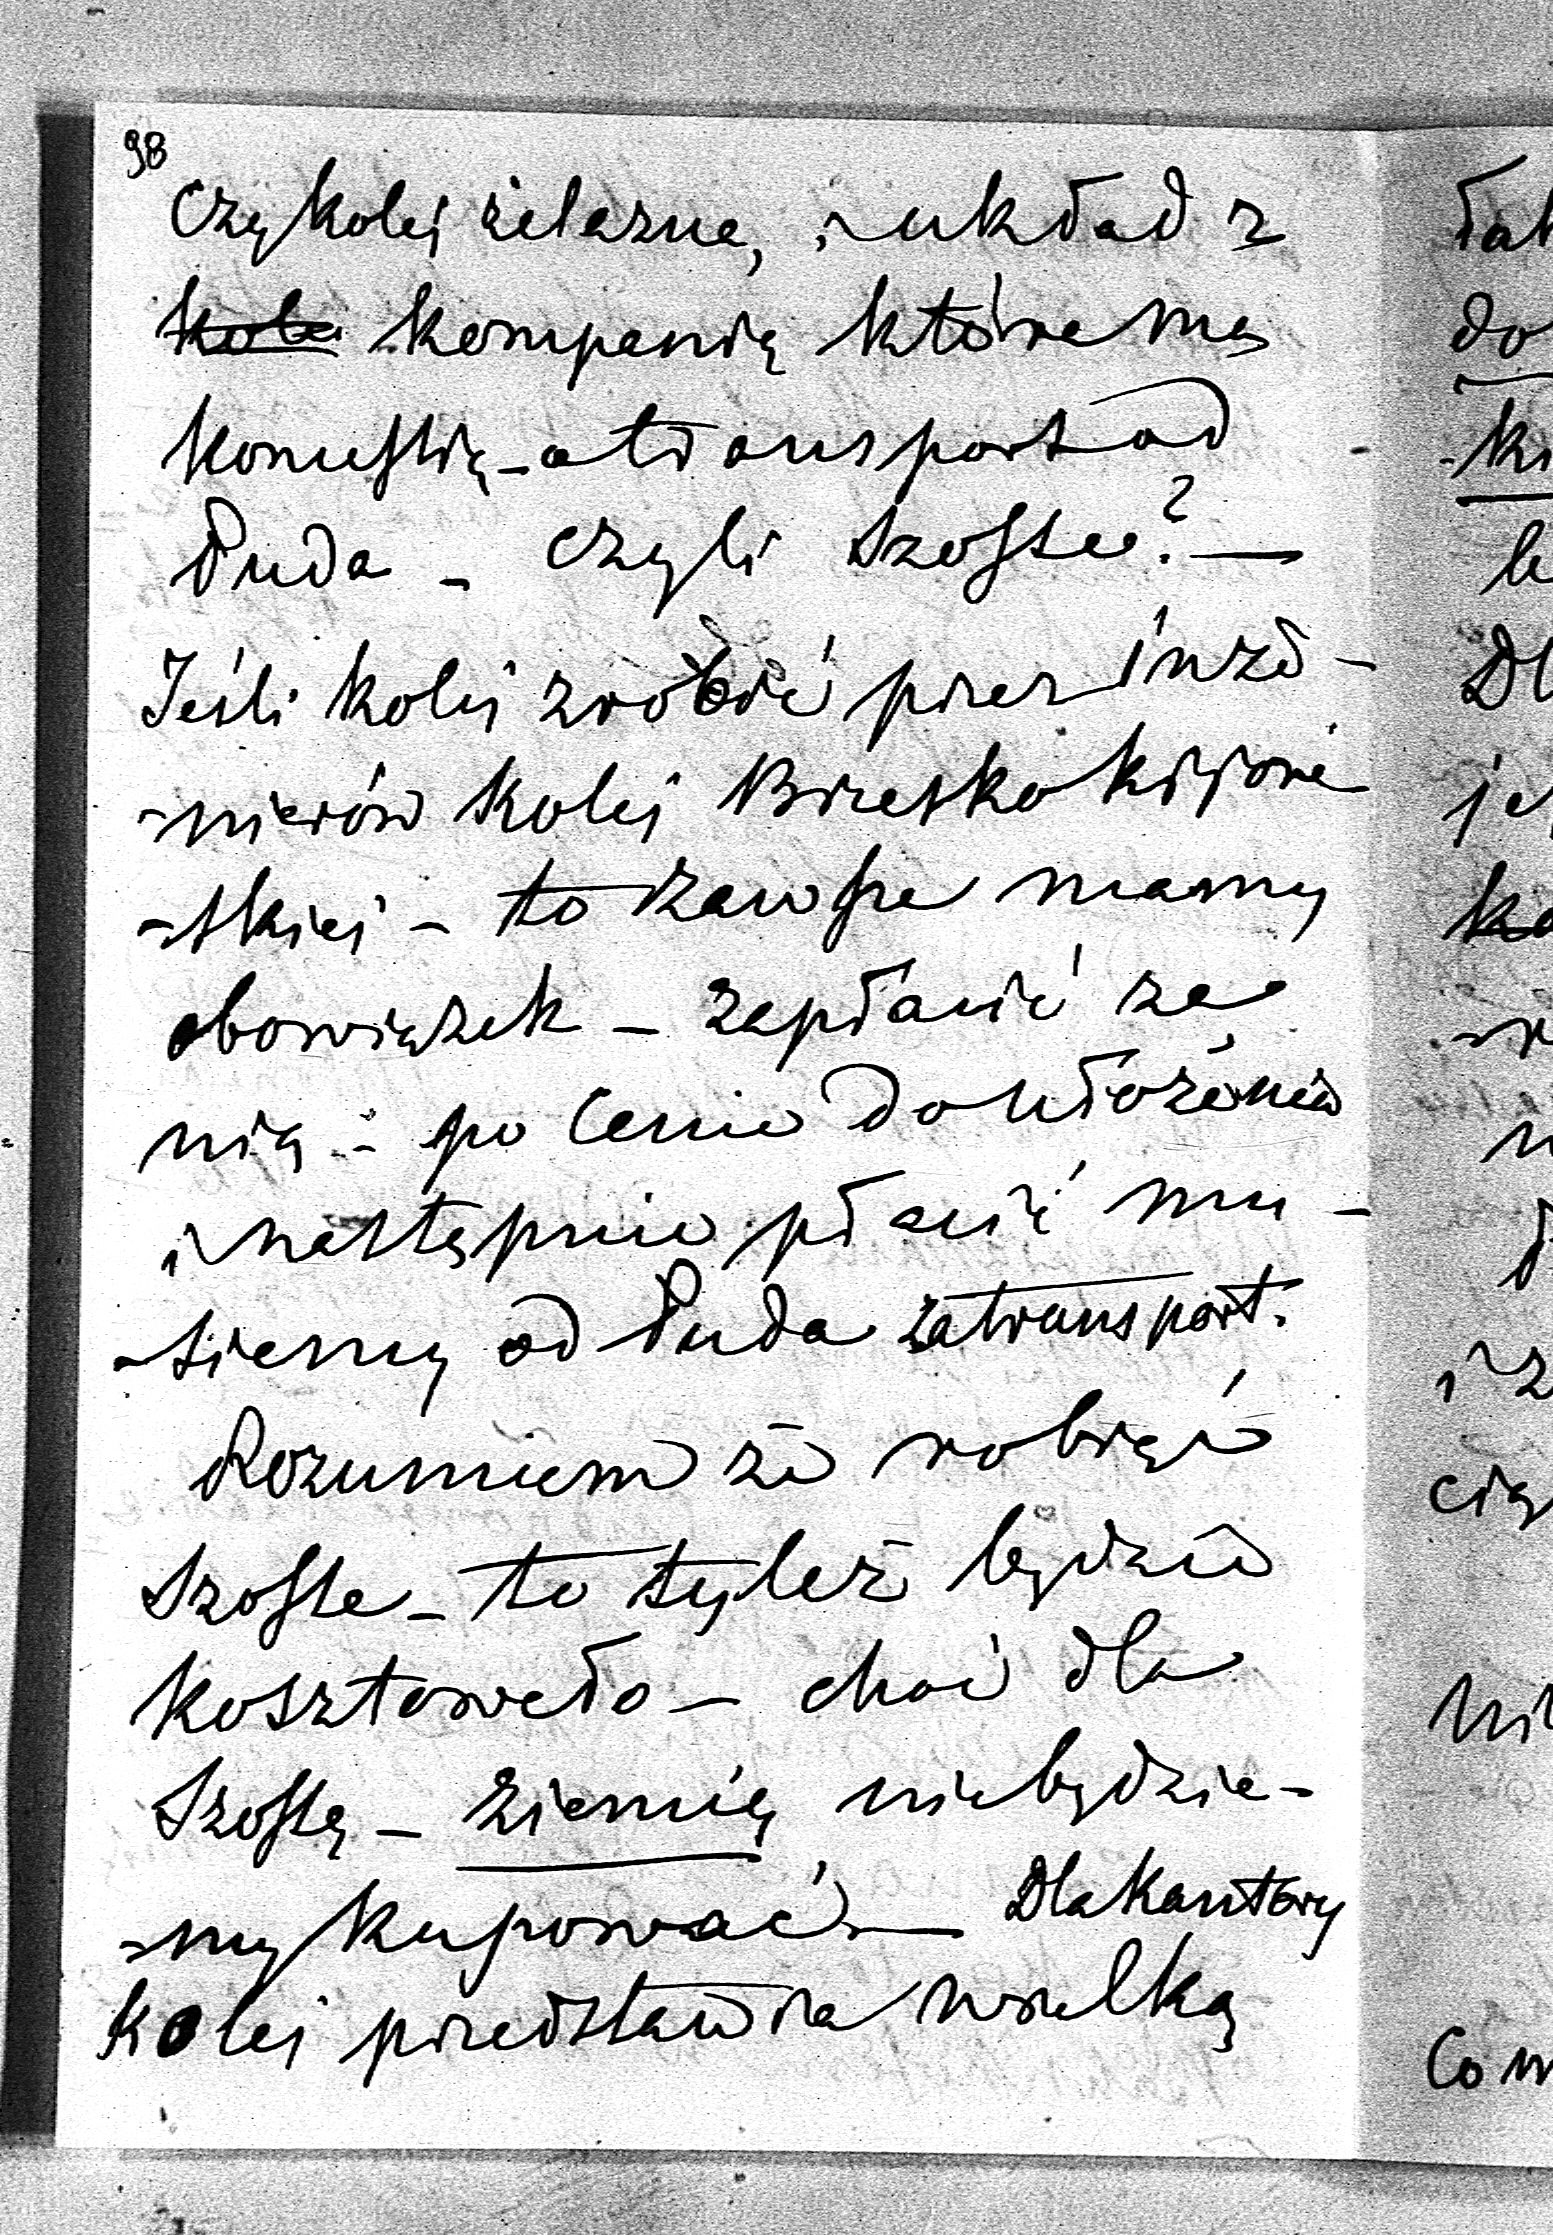 98
Czy kolej żelazna, i układ z
kolei kompanią które mą
 - a transport od
Puda - czyli szosse? —
Jeśli kolej zrobić przez inże-
-nierów Kolej Brzesko kijow-
-skiej - to zawsze mamy
obowiązek - zapłacić za
nią - po cenie do ułożenia
i następnie płacić mu-
-siemy od Puda za transport.
Rozumiem że robiąc
szosse - to tyleż będzie
kosztowało - choć dla
Szossę - ziemię niebędzie-
-my kupować — Dla Kantory
Kolei przedstawia wielką